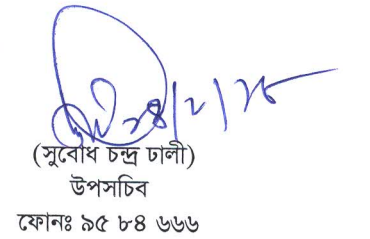 ২৪/২/১৬
(সুবোধ চন্দ্র ঢালী)
উপসচিব
ফোনঃ ৯৫ ৮৪ ৬৬৬